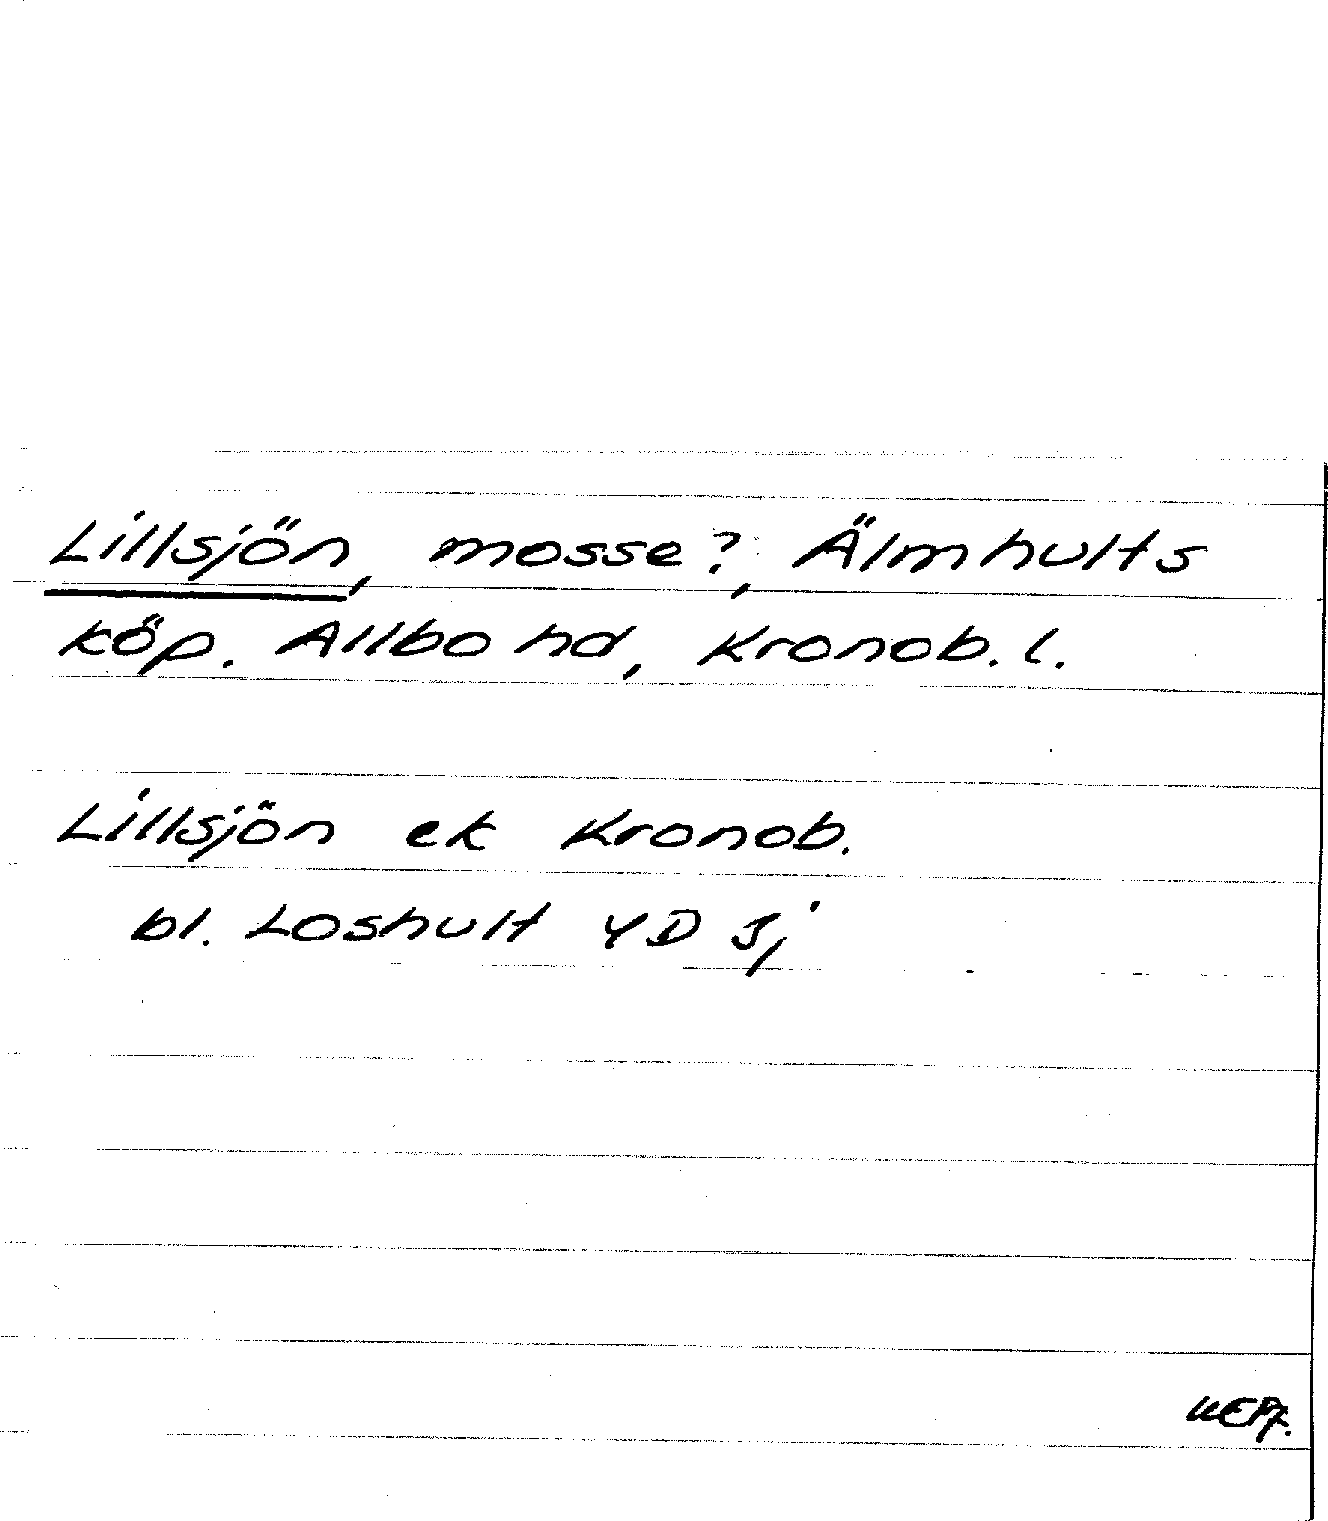 Lillsjön, mosse?, Älmhults
köp. Allbo hd, Kronob. l.
Lillsjön ek Kronob.
bl. Loshult 4D Sj